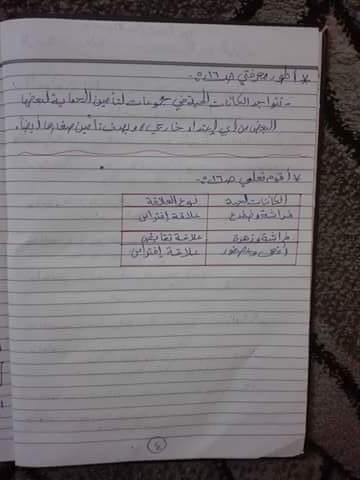 * أطور معرفتي ص١٦ :-
- تتواجد الكائنات الحية في مجموعات لتأمين الحماية لبعضها
البعض من أي اعتداء خارجي و بهدف تأمين صغارها أيضاً.
* أقوم تعلمي ص١٦ :-
الكائنات الحية نوع العلاقة
فراشة وضفدع علاقة إفتراس
فراشة وزهرة علاقة تقايض
أفعى وعصفور علاقة إفتراس
٤